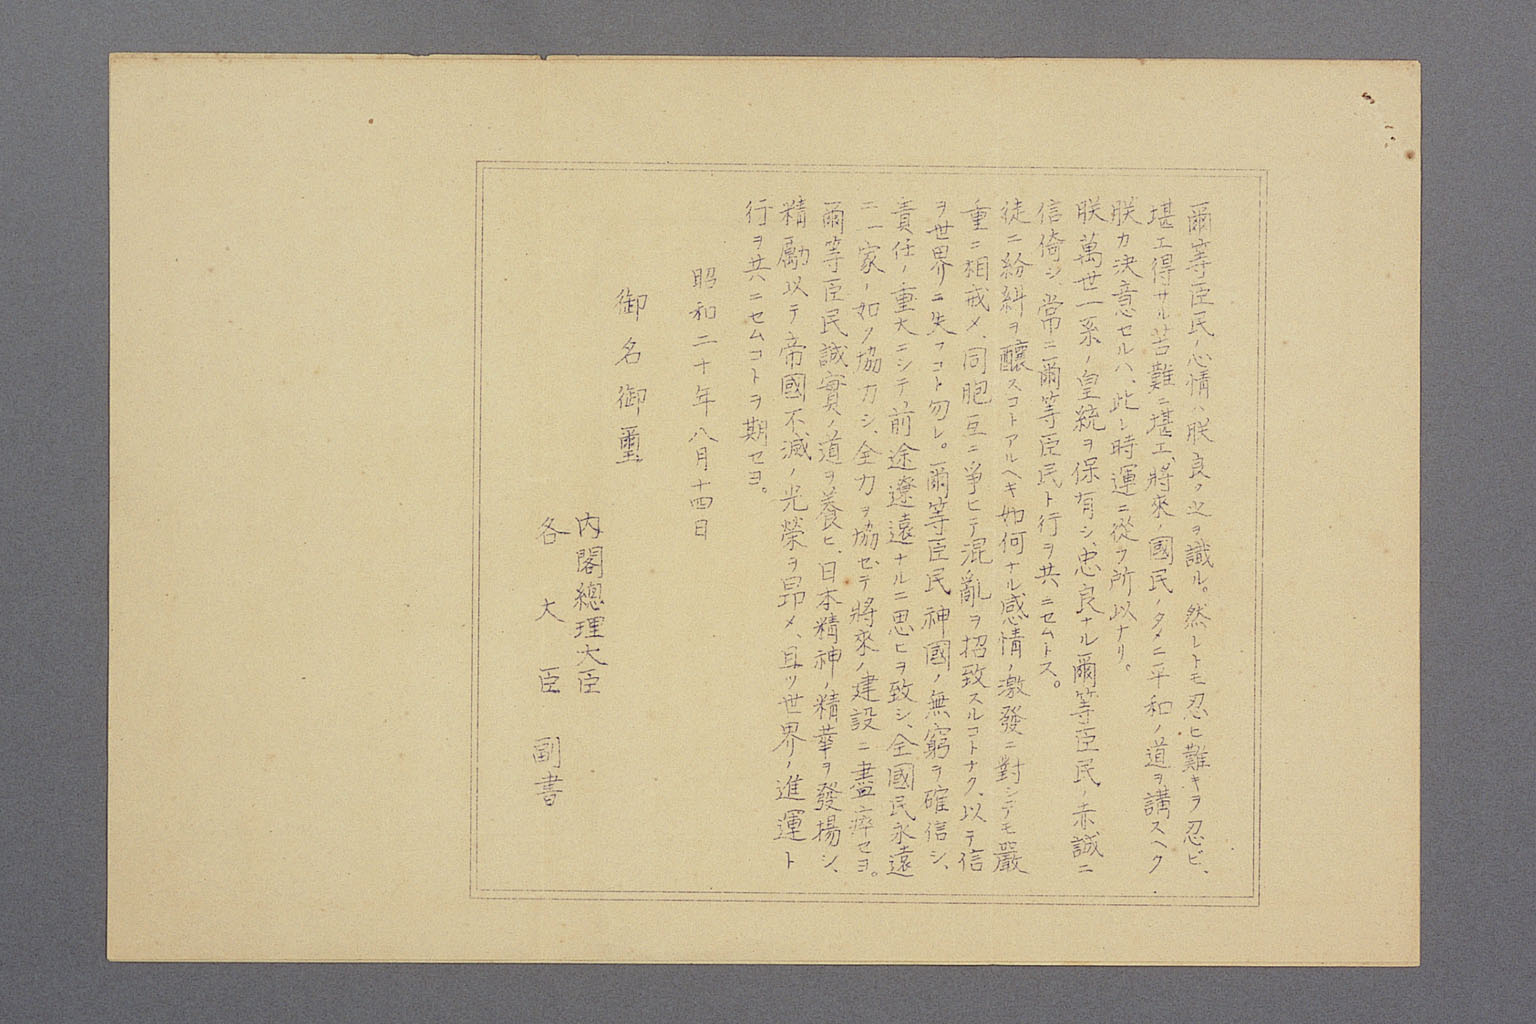 爾等臣民ノ心情ハ朕良ク之ヲ識ル。然レトモ忍ヒ難キヲ忍ビ、
堪エ得サル苦難ニ堪エ、將來ノ國民ノタメニ平和ノ道ヲ講スヘク
朕カ決意セルハ、此レ時運ニ從ヲ所以ナリ。
朕萬世一系ノ皇統ヲ保有シ、忠良ナル爾等臣民ノ赤誠ニ
信倚シ、常ニ爾等臣民ト行ヲ共ニセムトス。
徒ニ紛糾ヲ釀スコトアルヘキ如何ナル感情ノ激發ニ對シテモ嚴
重ニ相戒メ、同胞互ニ爭ヒテ混亂ヲ招致スルコトナク、以テ信
ヲ世界ニ失フコト勿レ。爾等臣民神國ノ無窮ヲ確信シ、
責任ノ重大ニシテ、前途遼遠ナルニ思ヒヲ致シ、全國民永遠
ニ一家ノ如ク協力シ、全力ヲ協セテ將來ノ建設ニ盡瘁セヨ。
爾等臣民誠實ノ道ヲ養ヒ、日本精神ノ精華ヲ發揚シ、
精勵以テ帝國不滅ノ光榮ヲ昂メ、且ツ世界ノ進運ト
行ヲ共ニセムコトヲ期セヨ。
昭和二十年八月十四日
御名御璽
內閣總理大臣
各大臣 副書